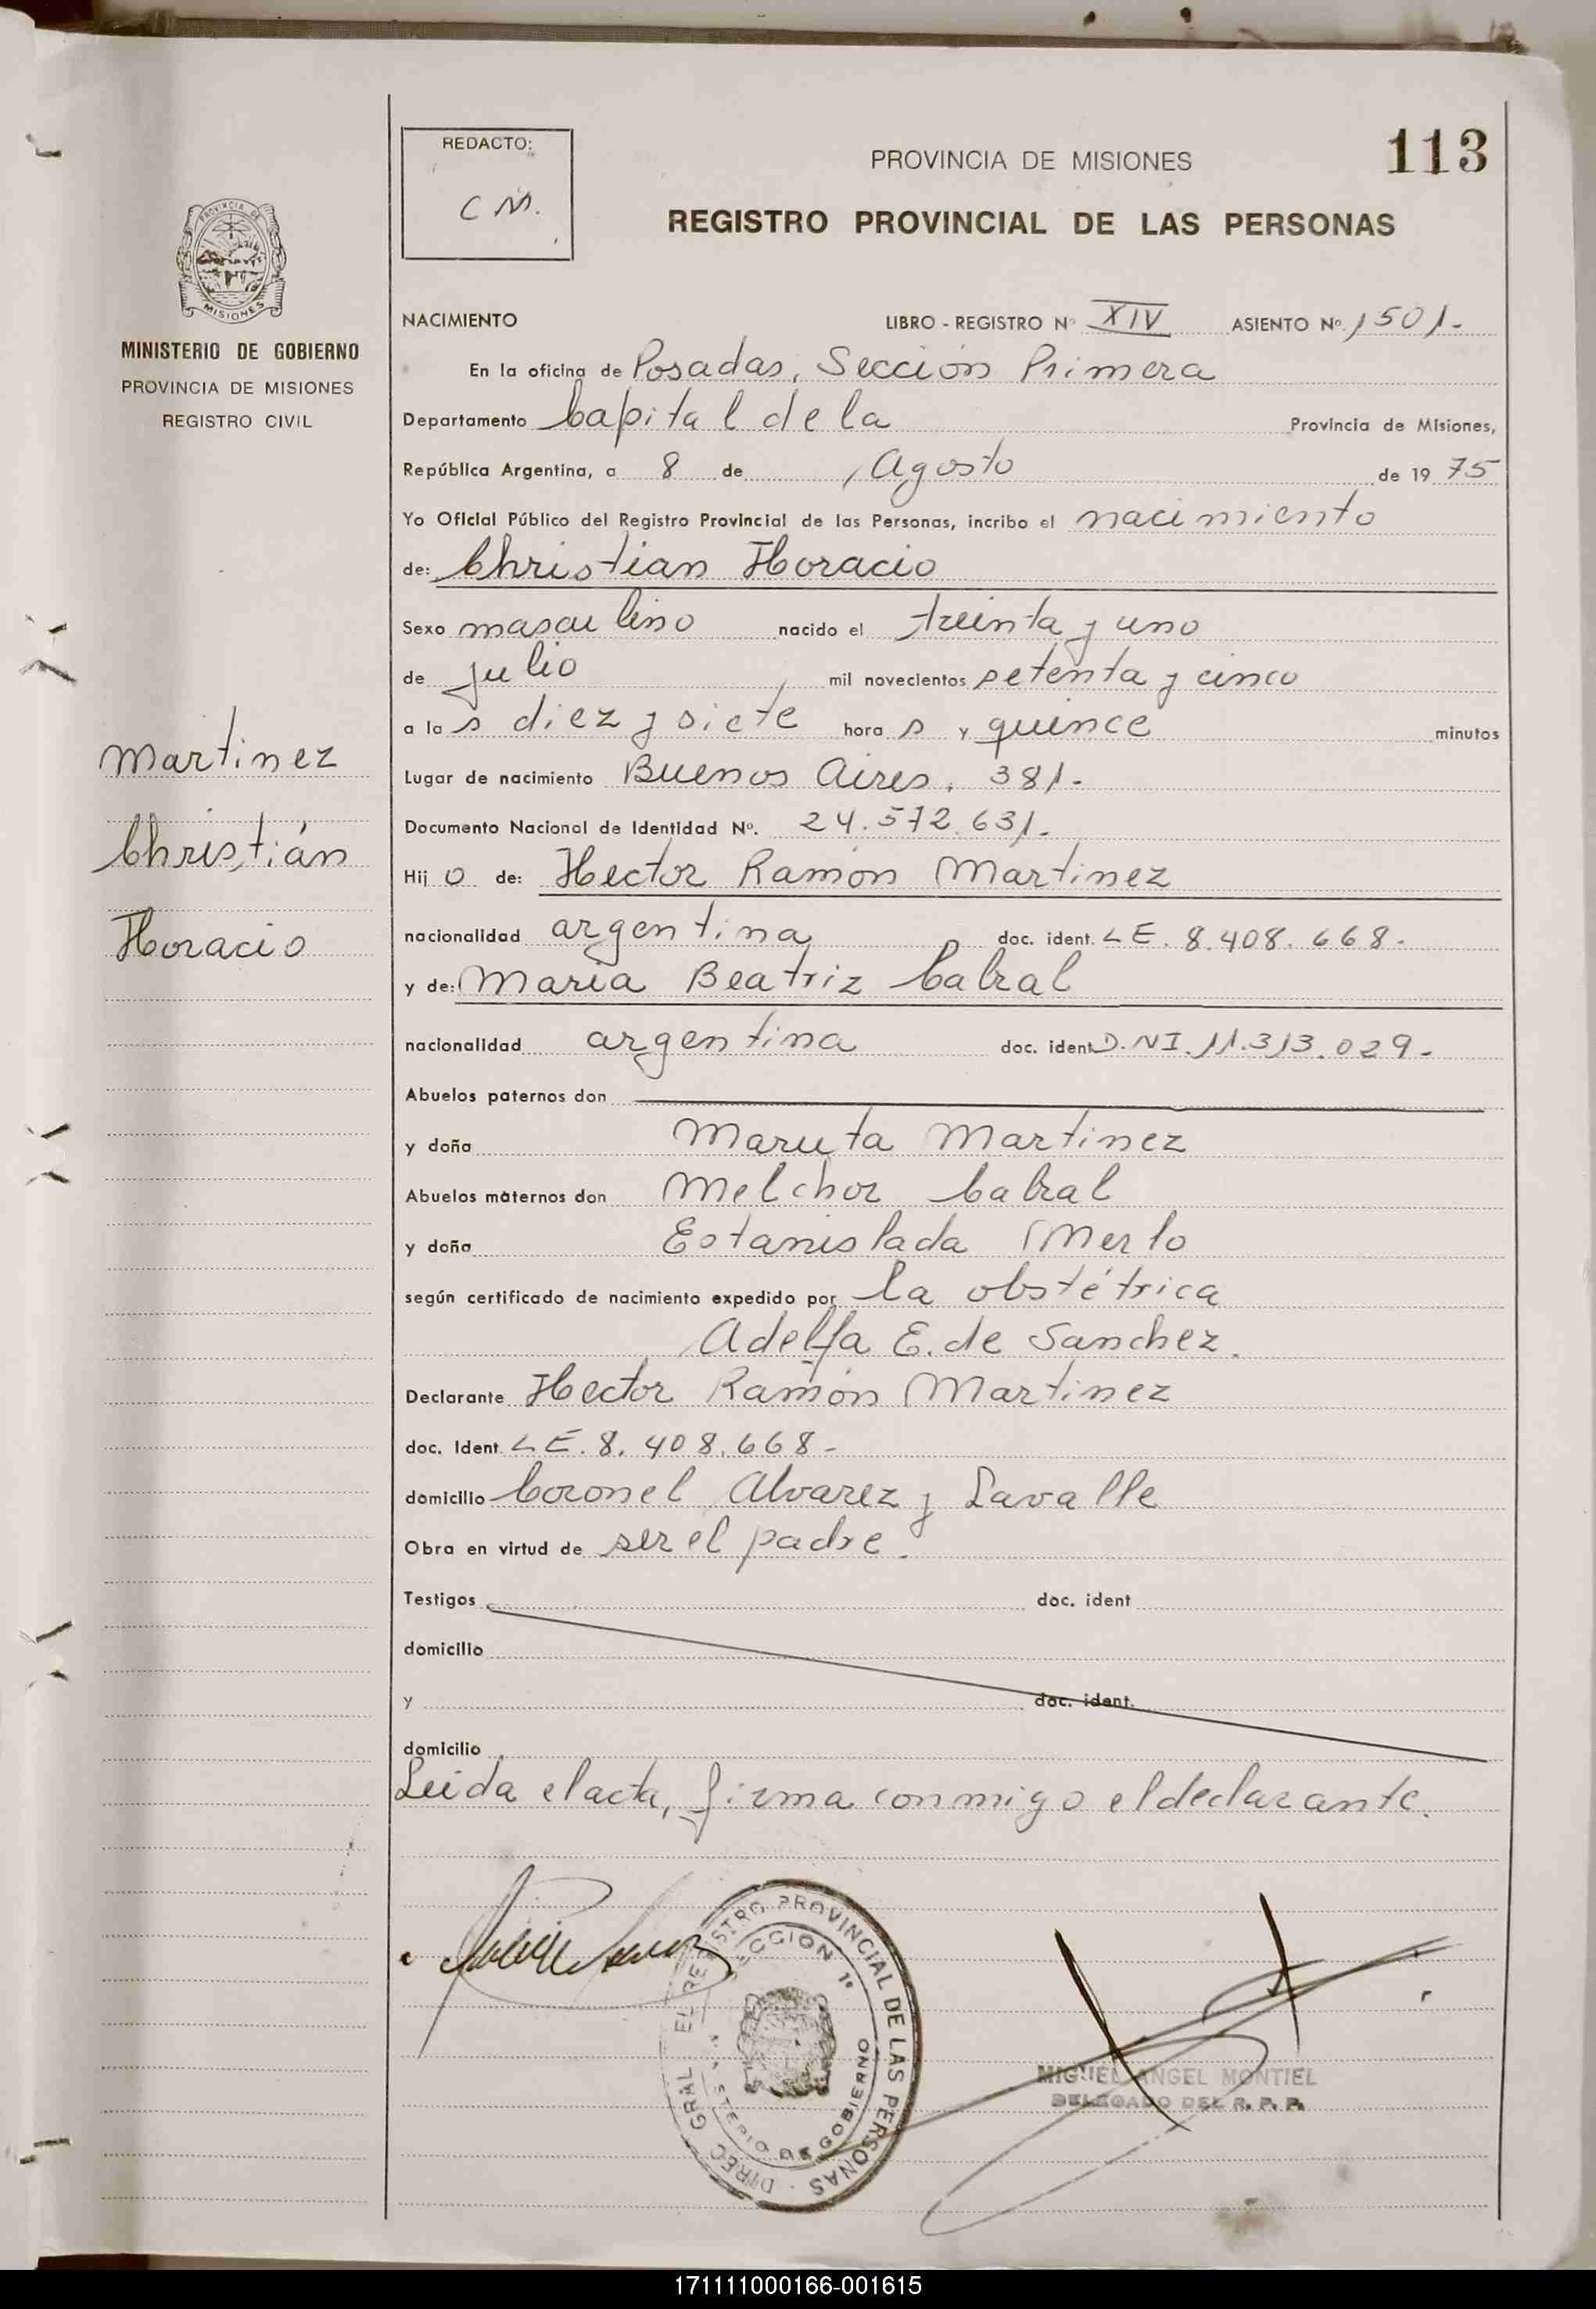 113
REDACTO:
C M.
PROVINCIA DE MISIONES
REGISTRO PROVINCIAL DE LAS PERSONAS
PROVINCIA DE
MISIONES
MINISTERIO DE GOBIERNO
PROVINCIA DE MISIONES
REGISTRO CIVIL
Martinez
Christián
Horacio
NACIMIENTO LIBRO - REGISTRO Nº XIV ASIENTO Nº 1501.-
En la oficina de Posadas, Sección Primera
Departamento Capital de la Provincia de Misiones,
República Argentina, a 8 de Agosto de 19 75
Yo Oficial Público del Registro Provincial de las Personas, incribo el nacimiento
de: Christian Horacio
Sexo masculino nacido el treinta y uno
de julio mil novecientos setenta y cinco
a la s diez y siete hora s y quince minutos
Lugar de nacimiento Buenos Aires, 381.-
Documento Nacional de Identidad Nº. 24.572.631.-
Hij o de: Hector Ramón Martinez
nacionalidad argentina doc. ident. LE. 8.408.668.-
y de: Maria Beatriz Cabral
nacionalidad argentina doc. ident D.NI. 11.313.029.-
Abuelos paternos don
y doña Maruta Martinez
Abuelos maternos don Melchor Cabral
y doña Estanislada Merlo
según certificado de nacimiento expedido por la obstétrica
Adelfa E. de Sanchez.
Declarante Hector Ramón Martinez
doc. Ident. LE. 8.408.668-
domicilio Coronel Alvarez y Lavalle
Obra en virtud de ser el padre.
Testigos doc. ident
domicilio
y doc. ident.
domicilio
Leida el acta, firma conmigo el declarante.
REGISTRO PROVINCIAL DE LAS PERSONAS
SECCION 1ª
DE GOBIERNO
DIREC GRAL
MIGUEL ANGEL MONTIEL
DELEGADO DEL R. P. P.
171111000166-001615